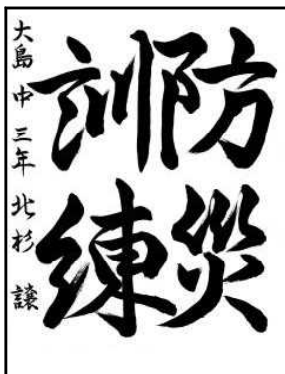 防災
訓練
大島中三年 北杉 譲